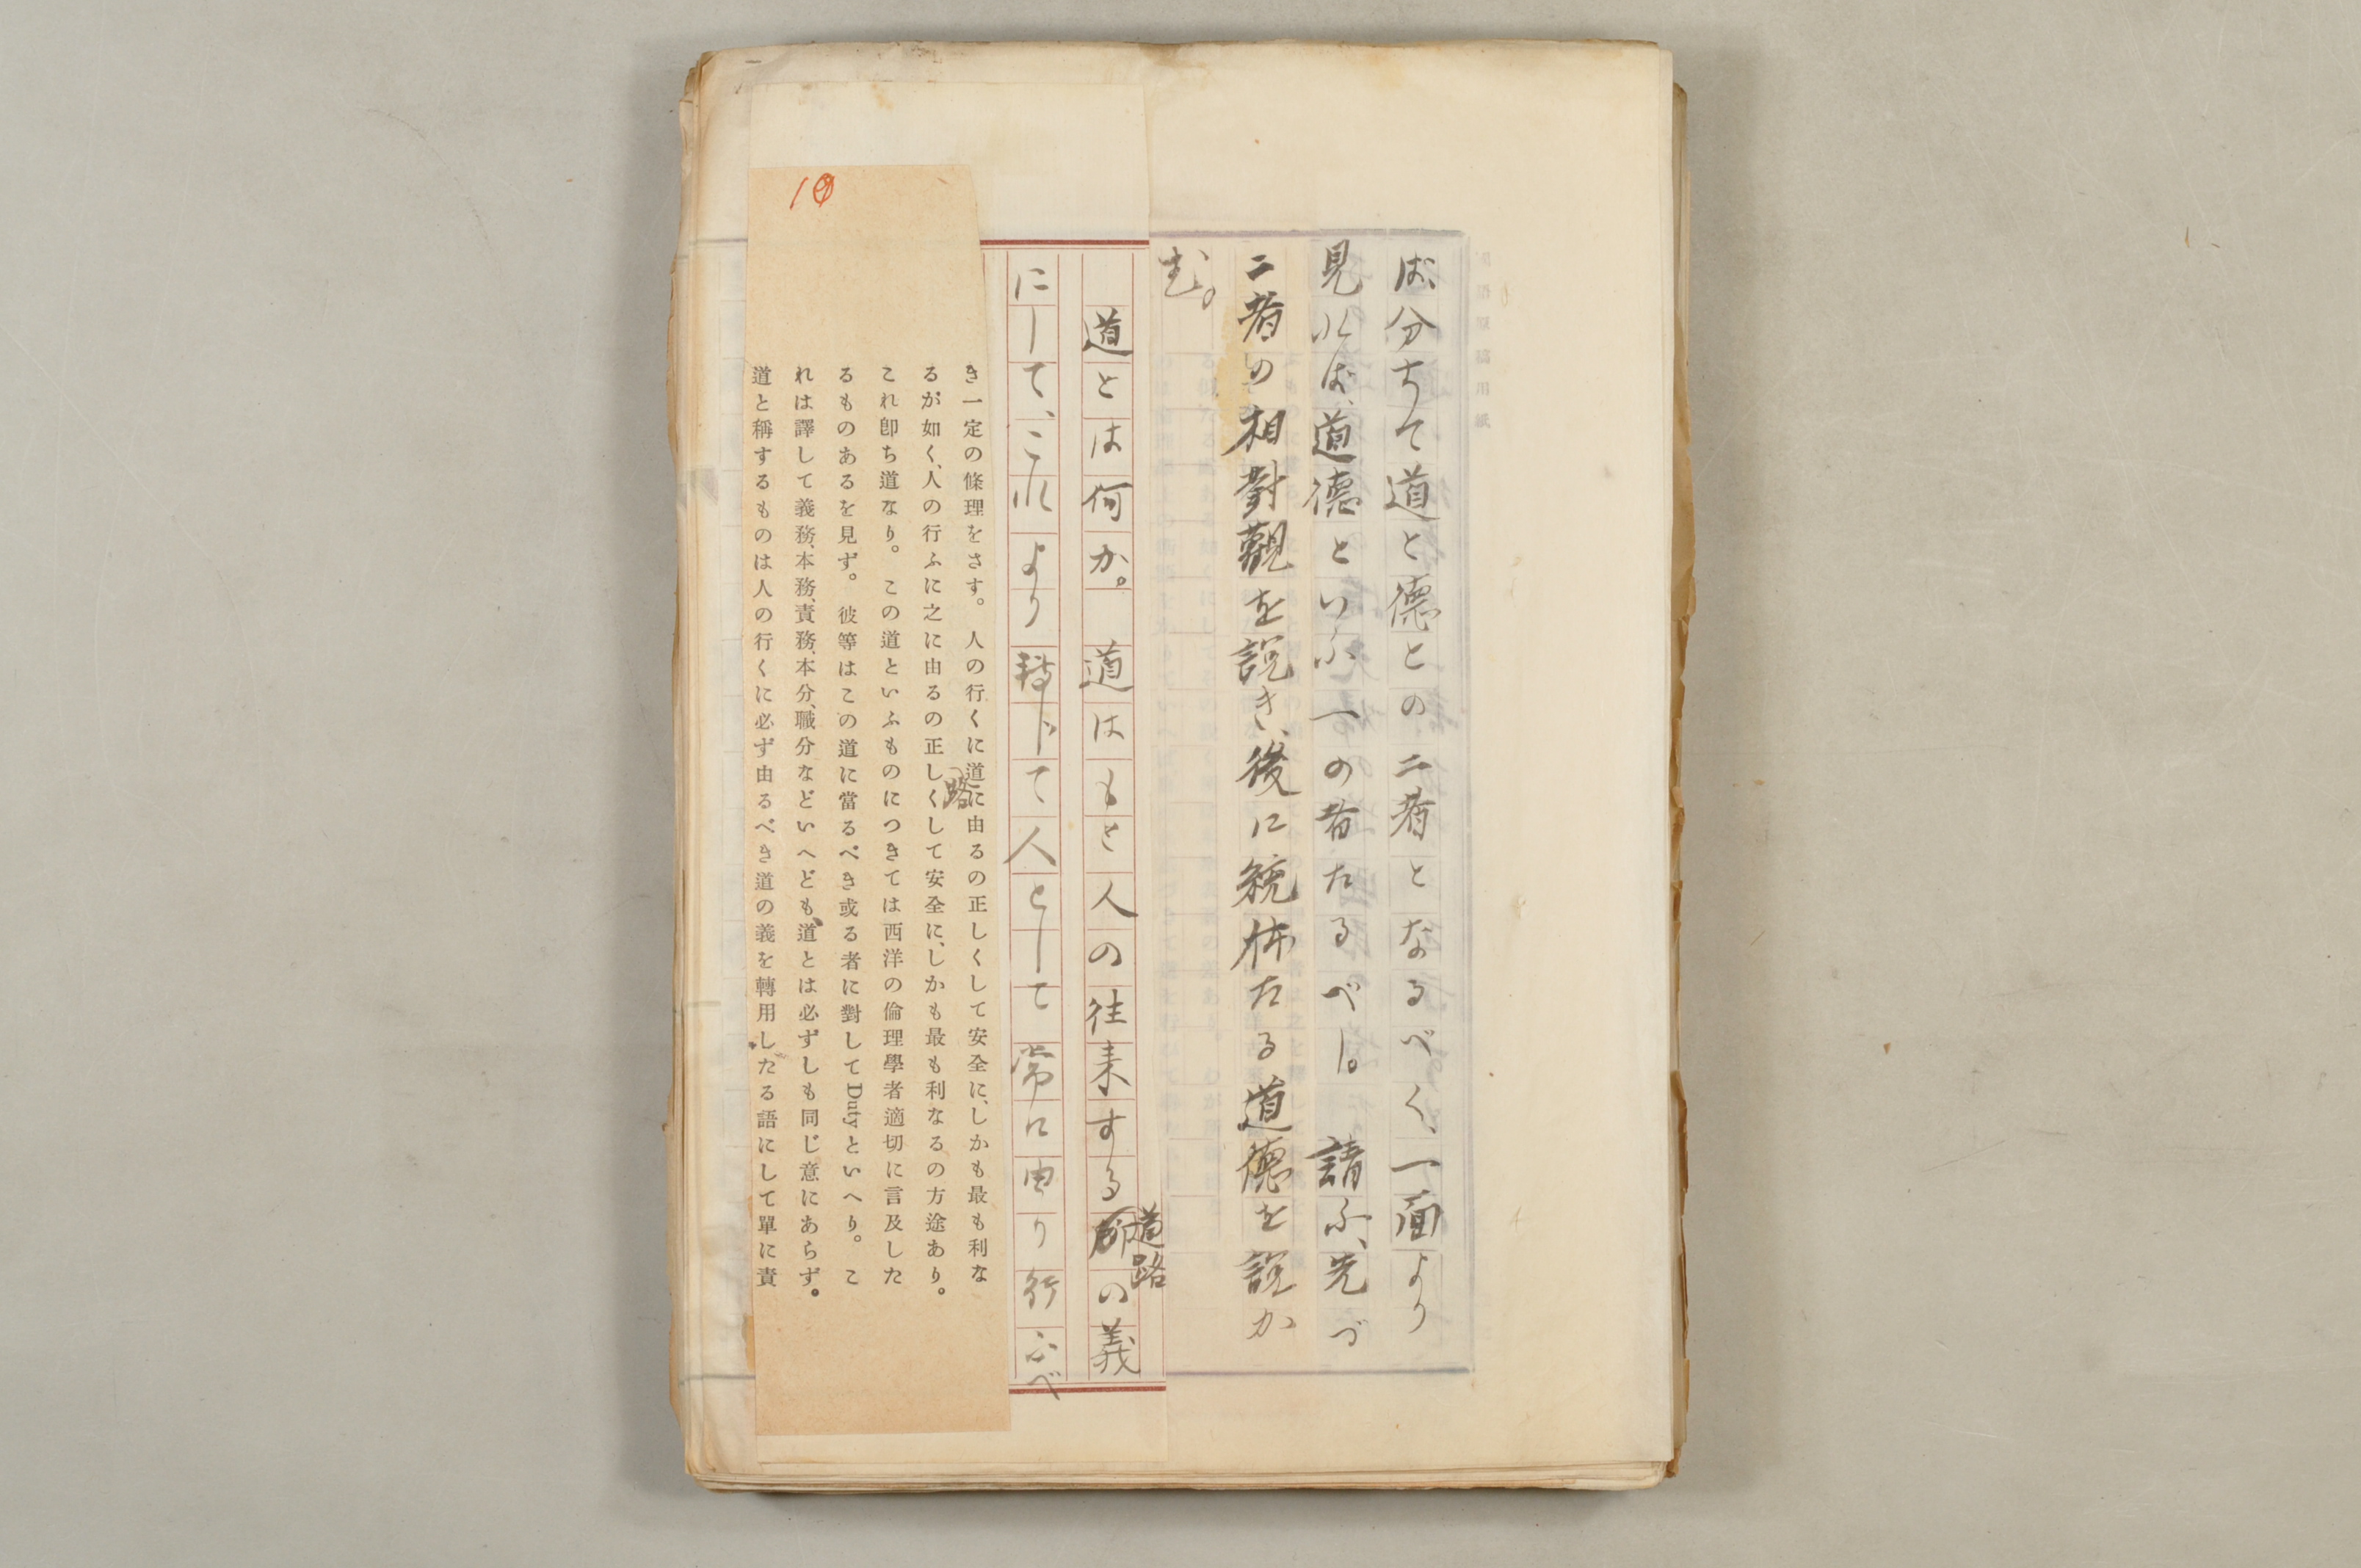 ば、分ちて道と德との二者となるべく、一面より
見れば、道德といふ一の者たるべし。請ふ、先づ
二者の相對觀を説き、後に統体たる道德を説か
む。
道とは何か。道はもと人の往來する所の義
道路
にして、これより轉じて人として常に由り行ふべ
き一定の條理をさす。人の行くに道に由るの正しくして安全に、しかも最も利な
路
るが如く、人の行ふに之に由るの正しくして安全に、しかも最も利なるの方途あり。
これ卽ち道なり。この道といふものにつきては西洋の倫理學者適切に言及した
るものあるを見ず。彼等はこの道に當るべき或る者に對してDutyといへり。こ
れは譯して義務、本務、責務、本分、職分などいへども、道とは必ずしも同じ意にあらず。
道と稱するものは人の行くに必ず由るべき道の義を轉用したる語にして單に責
10